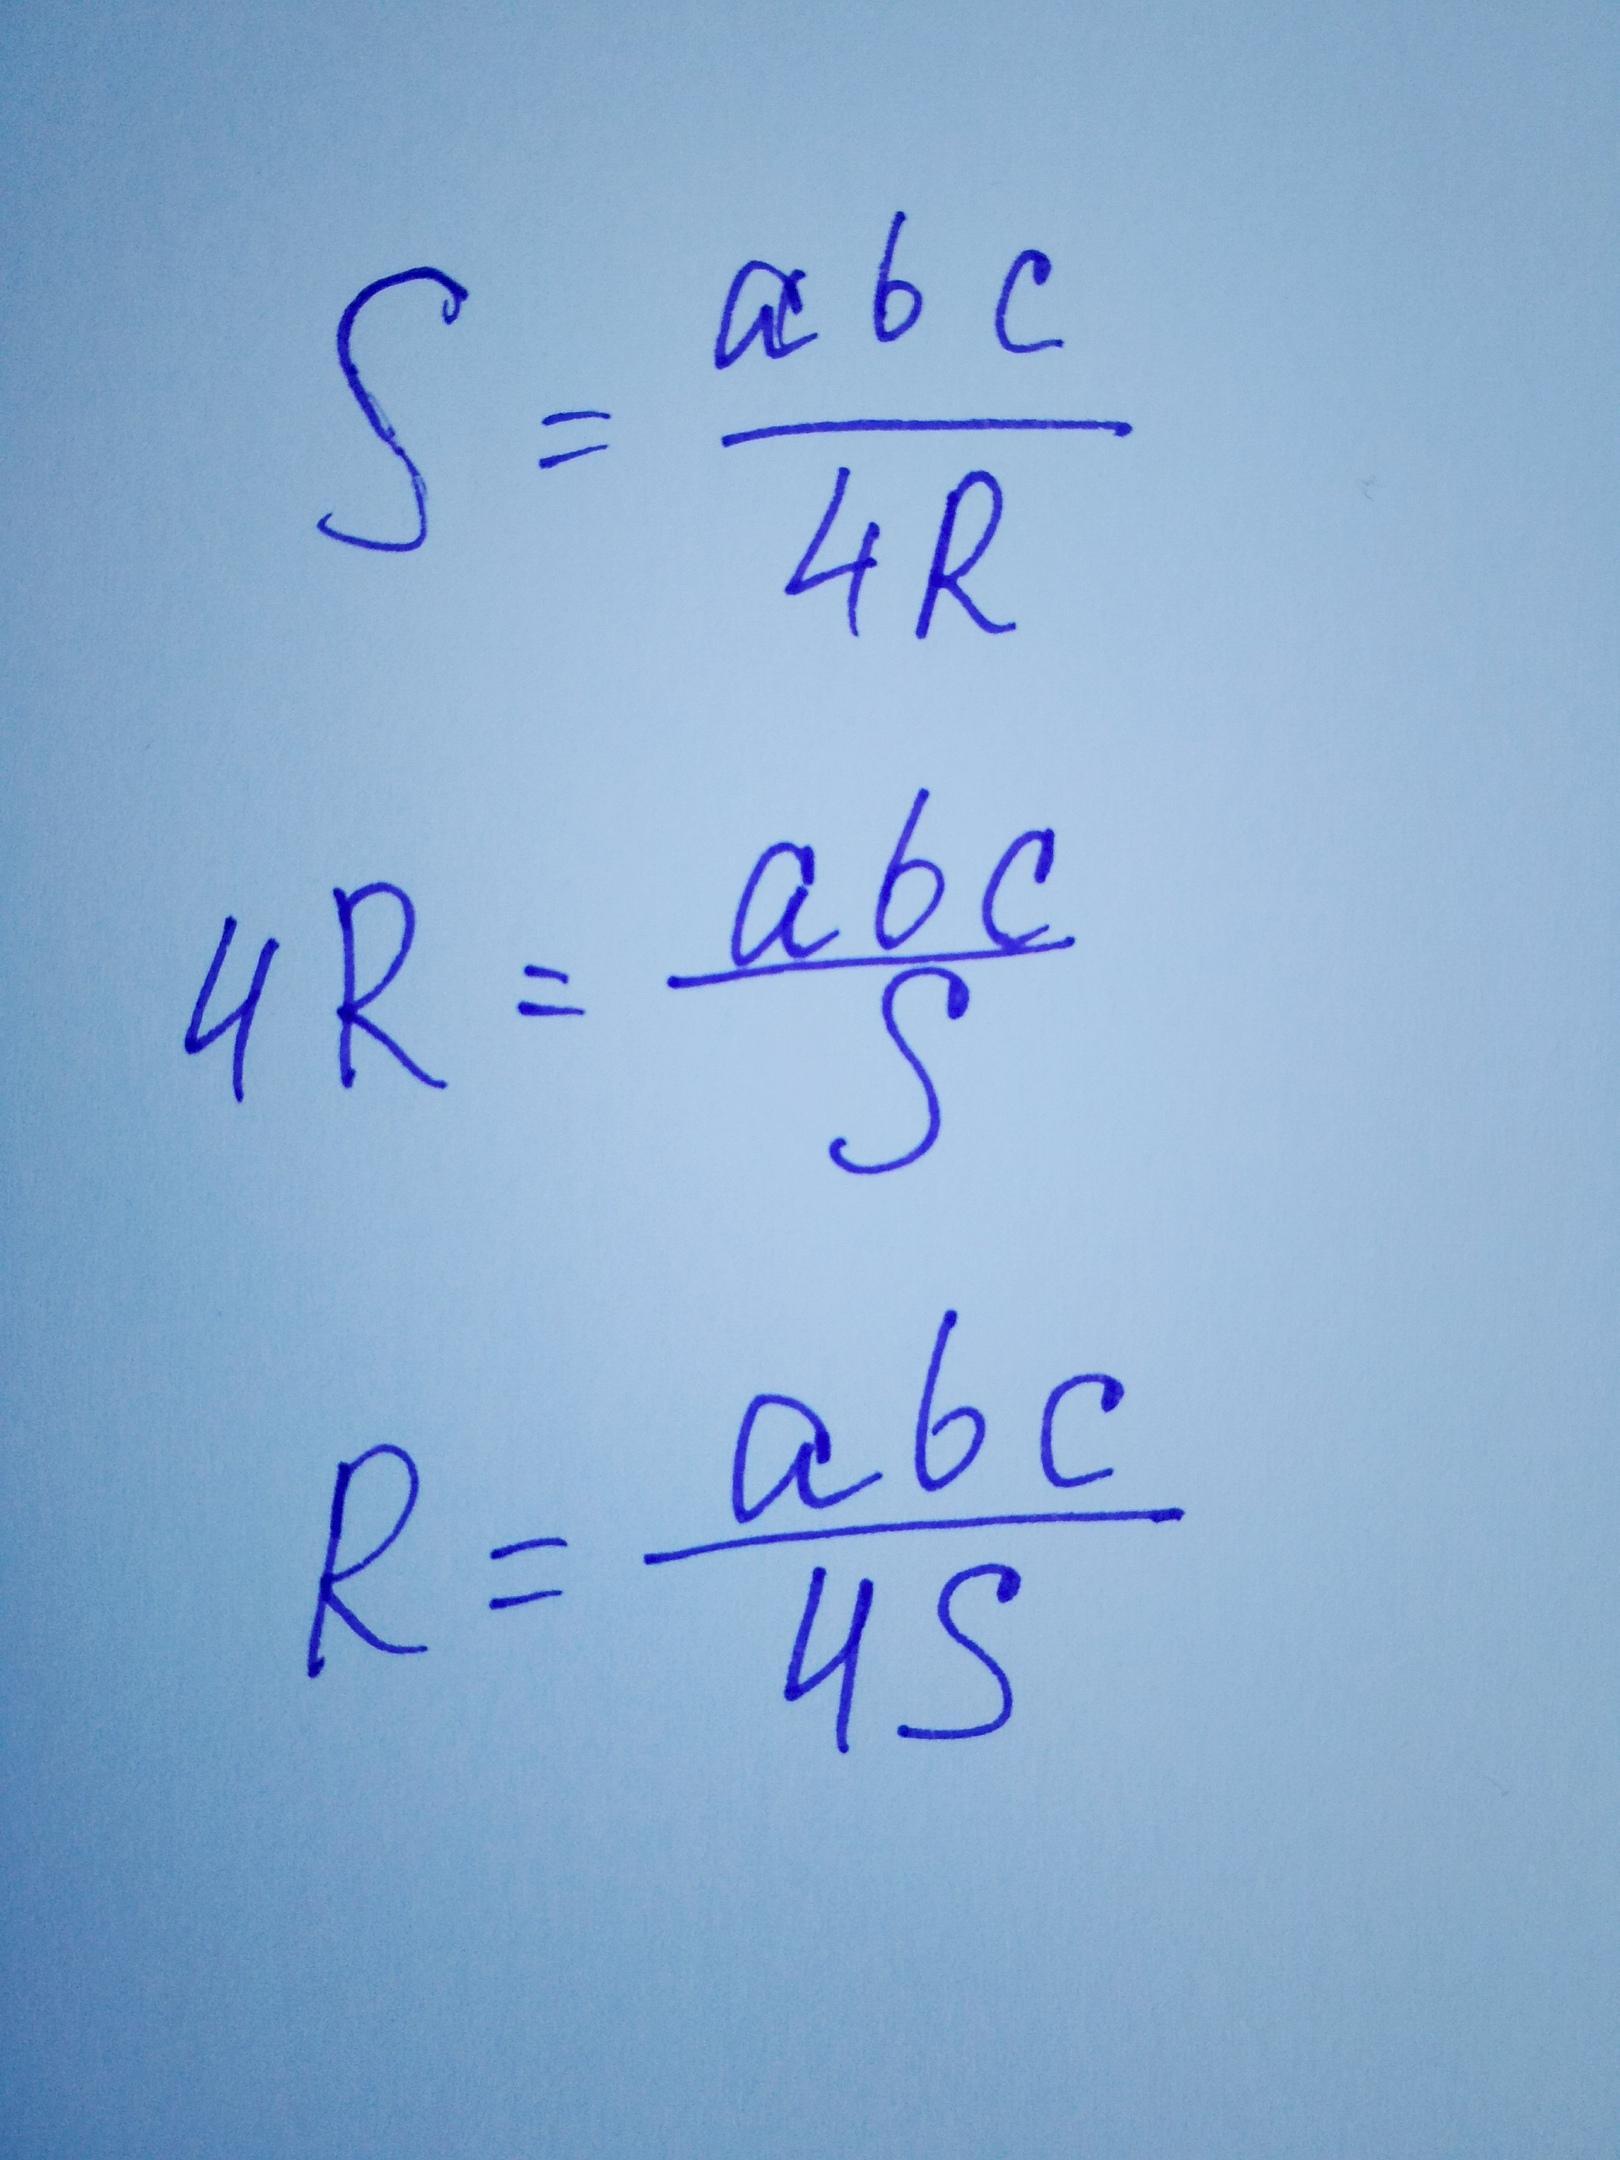 S = abc / 4R
4R = abc / S
R = abc / 4S